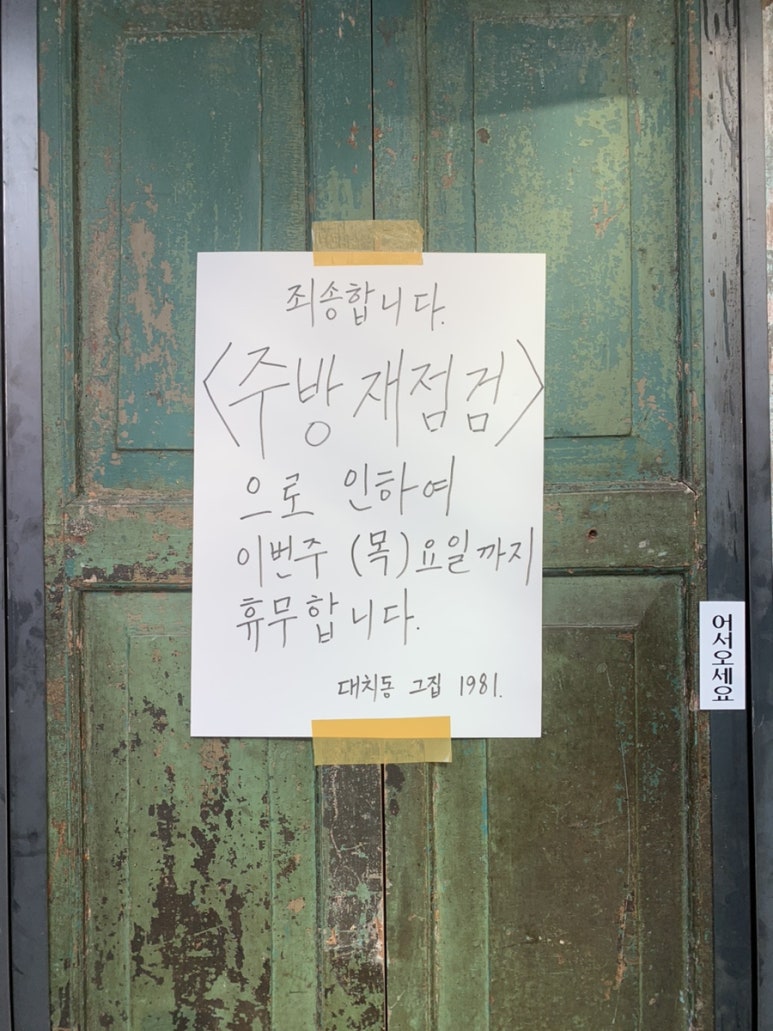 죄송합니다.
<주방 재점검>
으로 인하여
이번주 (목)요일까지
휴무합니다.
대치동 그집 1981.
어서오세요